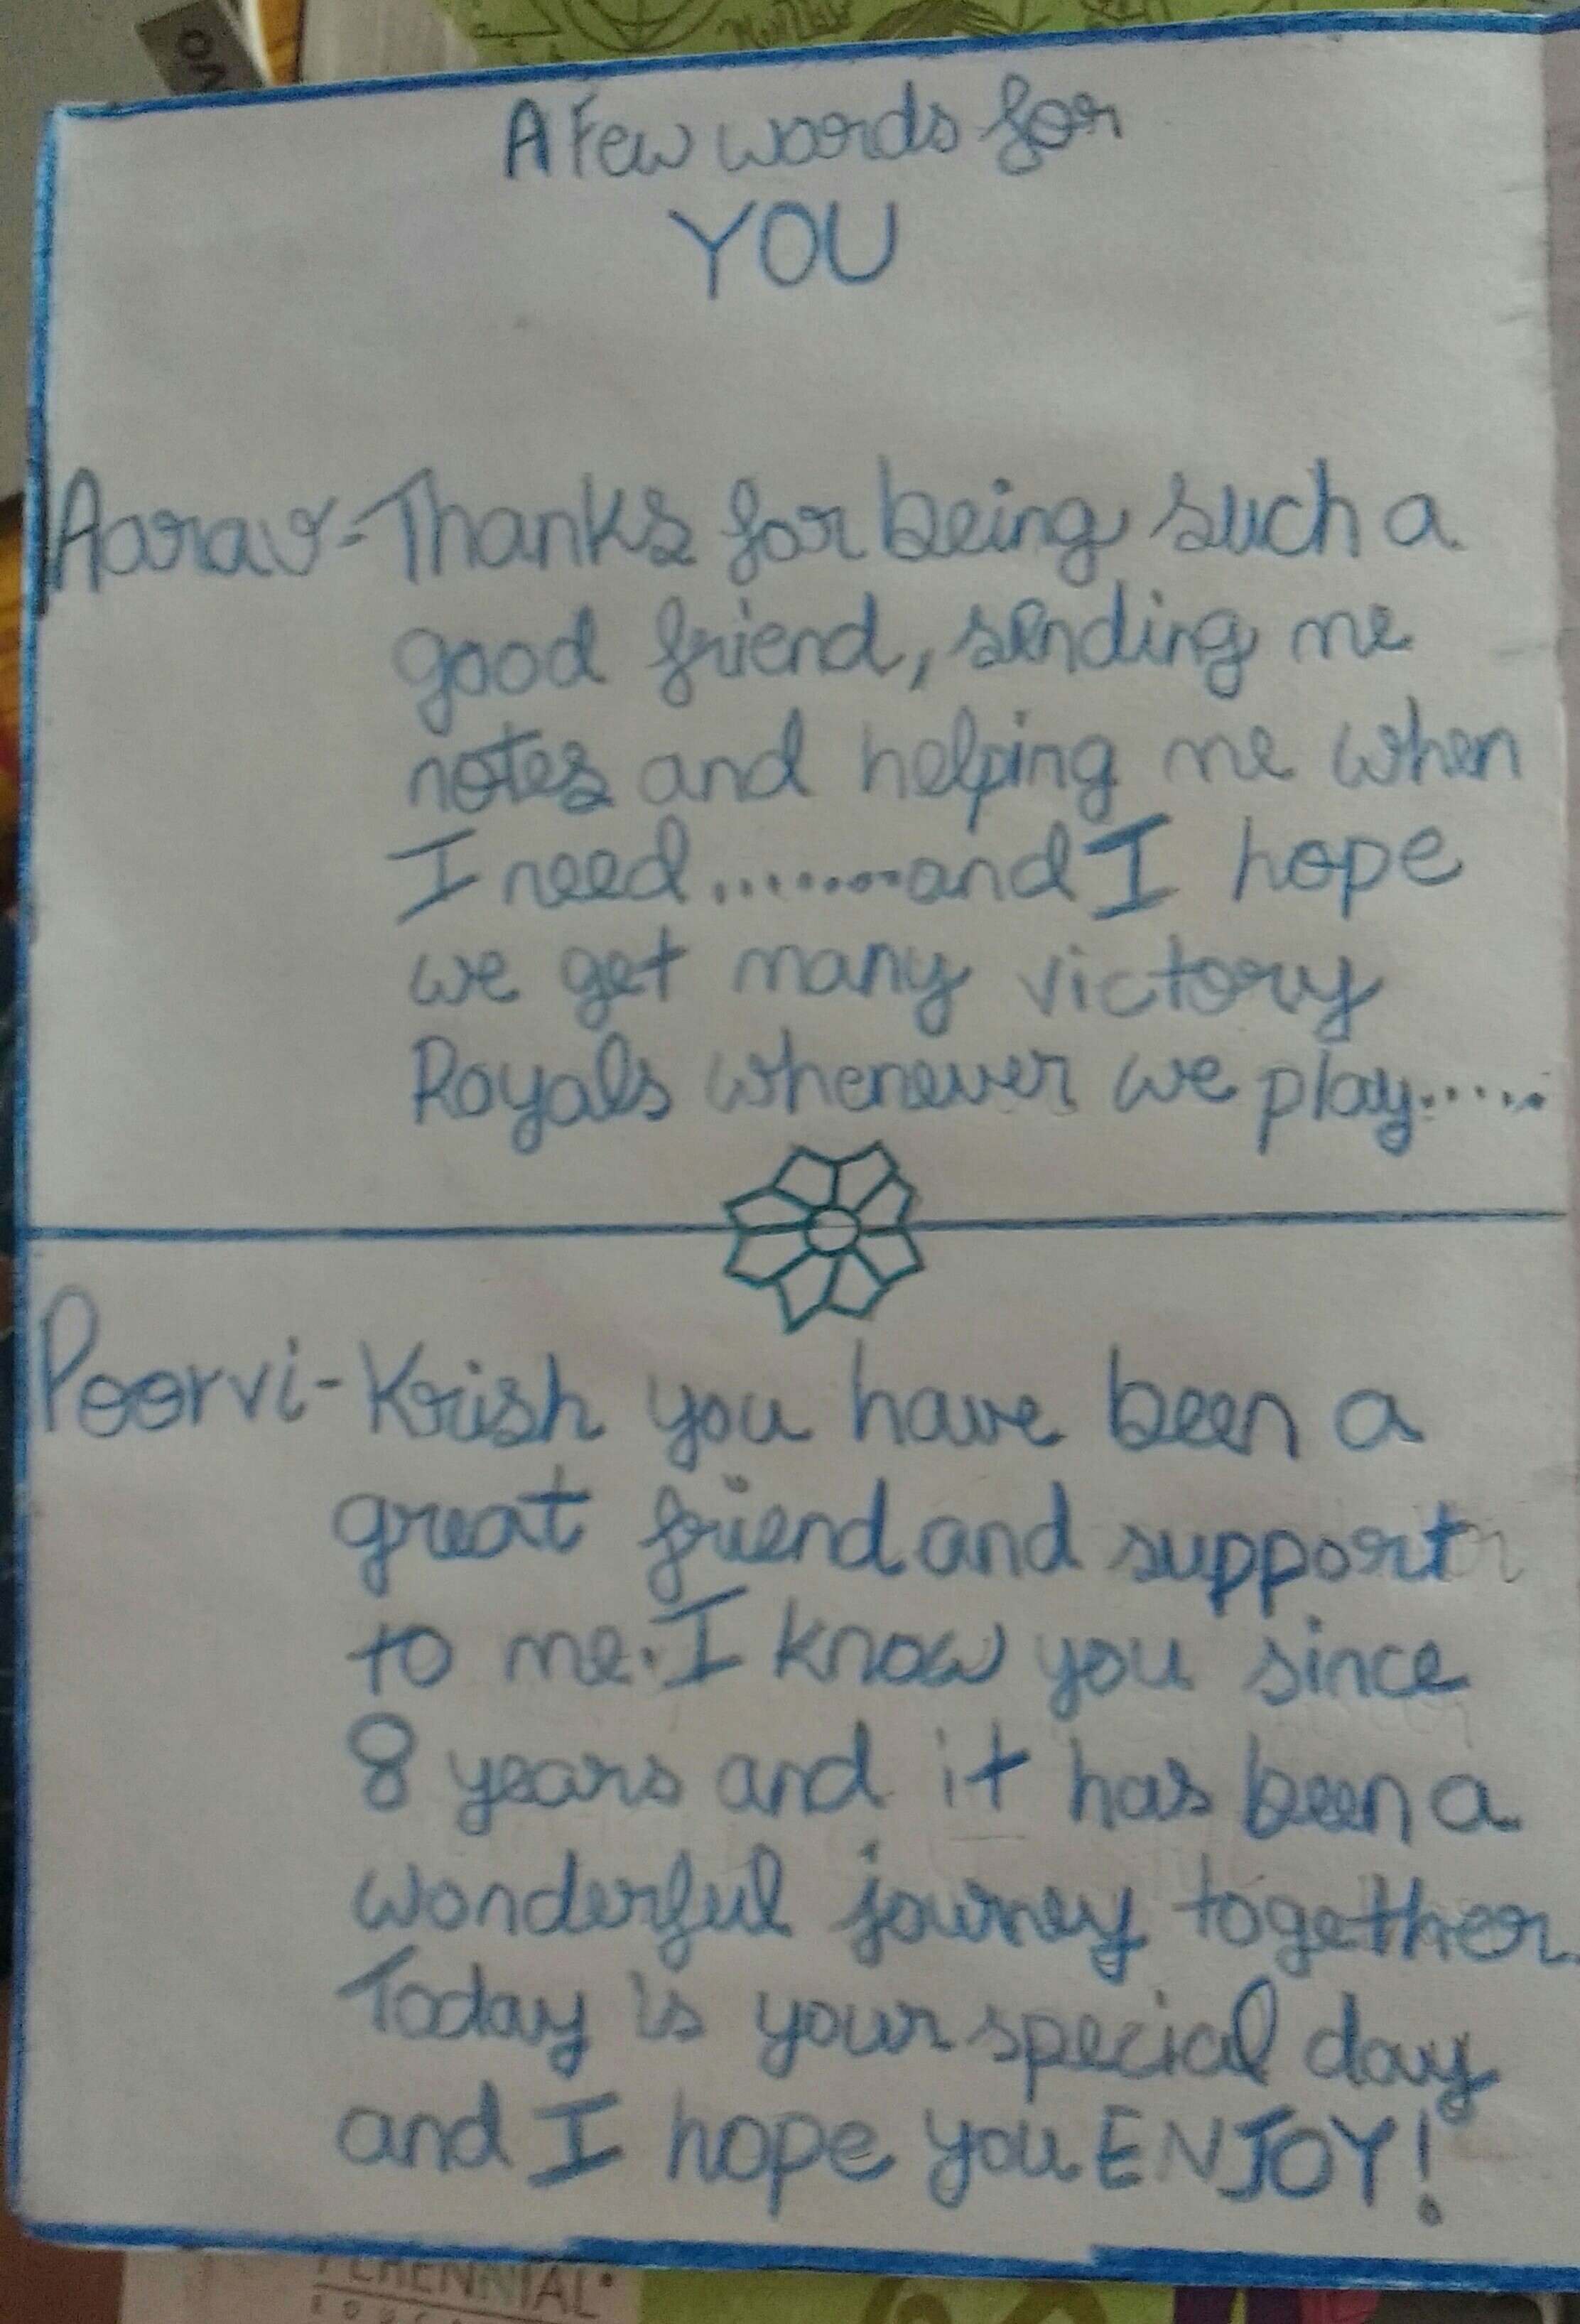 A Few words for
YOU
Aarav-Thanks for being such a
good friend, sending me
notes and helping me when
I need.........and I hope
we get many victory
Royals whenever we play......
Poorvi-Krish you have been a
great friend and support
to me. I know you since
8 years and it has been a
wonderful journey together.
Today is your special day
and I hope you ENJOY!
PERENNIAL